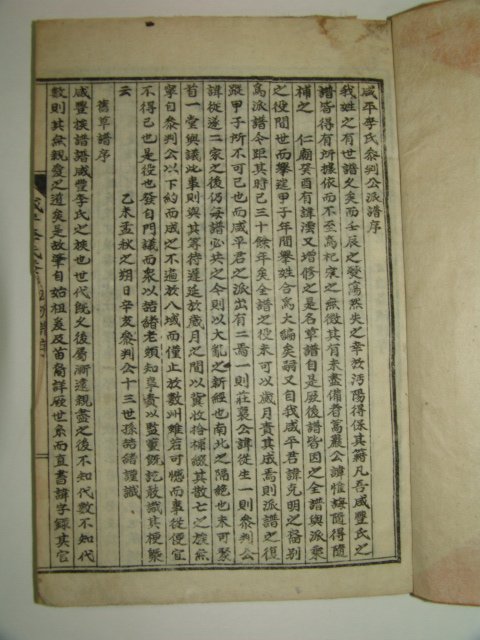 咸平李氏參判公派譜序
我姓之有世譜久矣而壬辰之變蕩然失之幸於沔陽得保其籍凡吾咸豐氏之
譜皆得有所據依而不至爲杞宋之無徵其有未盡備者萬嚴公諱惟誨隨得隨
補之 仁廟癸酉有諱澐又增修之是名草譜自是厥後譜皆因之全譜與派乘
之役間世而擧迄甲子年間擧姓合爲大論矣嗣又自我咸平君諱克明之裔別
爲派譜今距其時已三十餘年矣全譜之役未可以歲月責其成焉則派譜之復
蹤甲子所不可已也而咸平君之派出有二焉一則莊襄公諱從生一則參判公
諱從遂二家之後仍每譜必共之今則以大亂之新經也南北之隔絶也未可聚
首一堂與議此事則與其等待遲延於歲月之間以資收拾掇其散亡之族無
寧自參判公以下約而成之不過於八域而僅止於數州雖若可憾而事從便宜
不得已也是役也發自門議而衆以諮諸老頗知享責以監董旣訖敢識其梗槩
云
乙未孟秋之朔日辛亥參判公十三世孫 諮諸謹識
舊草譜序
咸豐族譜譜咸豐李氏之族也世代旣久後屬漸遠親盡之後不知代數不知代
數則其無親愛之道矣是故肇自始祖爰及苗裔詳厥世系而直書諱字錄其官